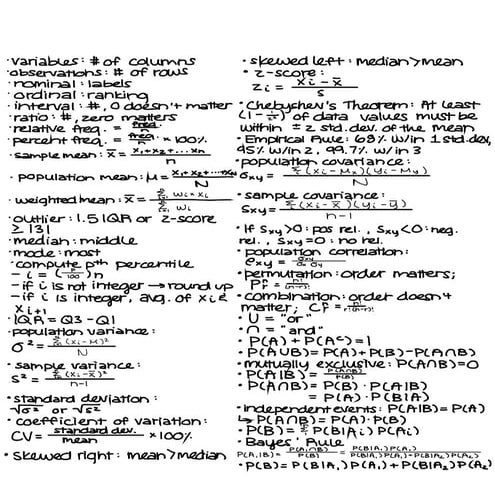 · variables: # of columns
· observations: # of rows
· nominal: labels
· ordinal: ranking
· interval: #, 0 doesn't matter
· ratio: #, zero matters
· relative freq. = freq./n
· percent freq. = freq./n × 100%
· sample mean: x̄ = x₁+x₂+...xₙ / n
· population mean: μ = x₁+x₂+...xN / N
· weighted mean: x̄ = Σ wᵢxᵢ / Σ wᵢ
· outlier: 1.5 IQR or z-score
≥ |3|
· median: middle
· mode: most
· compute pᵗʰ percentile
- i = (p/100)n
- if i is not integer → round up
- if i is integer, avg. of xᵢ &
xᵢ₊₁
· IQR = Q3 - Q1
· population variance:
σ² = Σ(xᵢ-μ)² / N
· sample variance:
s² = Σ(xᵢ-x̄)² / n-1
· standard deviation:
√σ² or √s²
· coefficient of variation:
CV = standard dev. / mean × 100%
· skewed right: mean > median
· skewed left: median > mean
· z-score:
zᵢ = xᵢ - x̄ / s
· Chebychev's Theorem: At least
(1 - 1/z²) of data values must be
within ± z std. dev. of the mean
· Empirical Rule: 68% w/in 1 std. dev,
95% w/in 2, 99.7% w/in 3
· population covariance:
σxy = Σ(xᵢ-μx)(yᵢ-μy) / N
· sample covariance:
sxy = Σ(xᵢ-x̄)(yᵢ-ȳ) / n-1
· If sxy>0: pos rel., sxy<0: neg.
rel., sxy=0: no rel.
· population correlation:
ρxy = σxy / σx σy
· permutation: order matters;
Pⁿᵣ = n!/(n-r)!
· combination: order doesn't
matter; Cⁿᵣ = n!/r!(n-r)!
· U = "or"
· ∩ = "and"
· P(A) + P(Aᶜ) = 1
· P(A∪B) = P(A) + P(B) - P(A∩B)
· mutually exclusive: P(A∩B)=0
· P(A|B) = P(A∩B) / P(B)
· P(A∩B) = P(B) · P(A|B)
= P(A) · P(B|A)
· independent events: P(A|B) = P(A)
↳ P(A∩B) = P(A) · P(B)
· P(B) = Σ P(B|Aᵢ) P(Aᵢ)
· Bayes' Rule